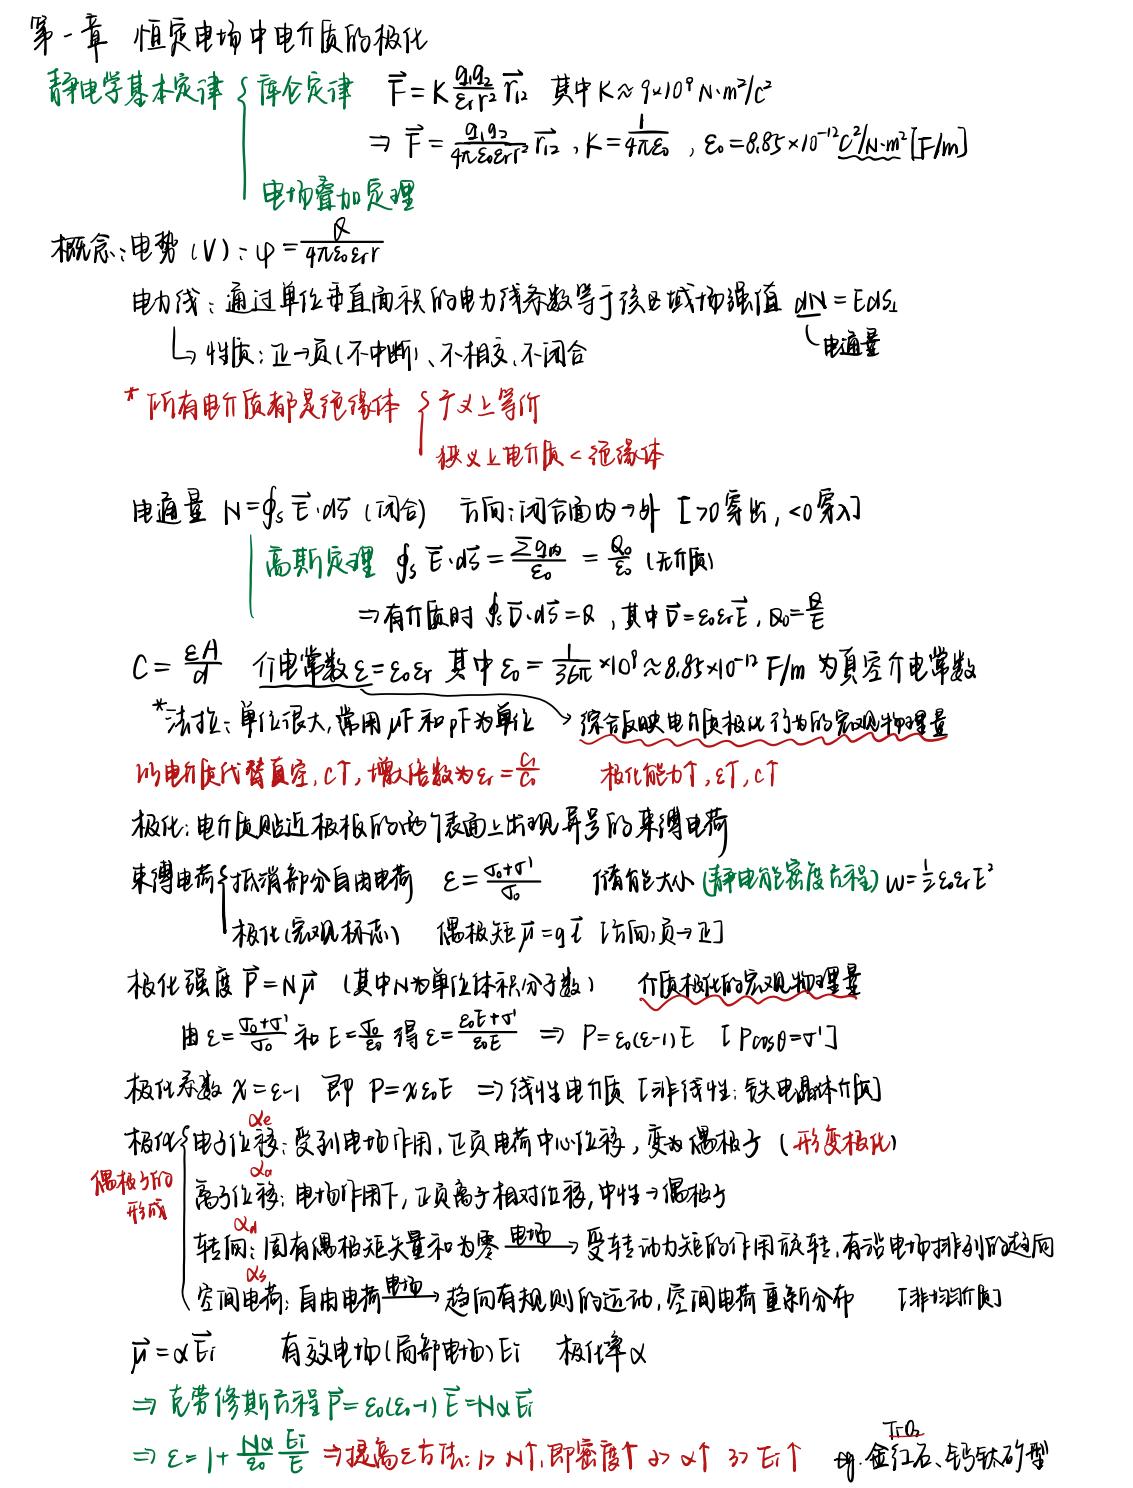 第一章 恒定电场中电介质的极化
静电学基本定律 { 库仑定律 F⃗ = K q₁q₂/(εᵣr²) r⃗₁₂ 其中 K≈9×10⁹ N·m²/c²
⇒ F⃗ = q₁q₂/(4πε₀εᵣr²) r⃗₁₂ , K = 1/(4πε₀) , ε₀=8.85×10⁻¹² C²/N·m² [F/m]
电场叠加定理
概念: 电势 (V): φ = Q/(4πε₀εᵣr)
电力线: 通过单位垂直面积的电力线条数等于该区域场强值 dN = EdS⊥
↳ 性质: 正→负(不中断)、不相交、不闭合 电通量
* 所有电介质都是绝缘体 { 广义上等价
狭义上电介质 < 绝缘体
电通量 N = ∮ₛ E⃗·dS⃗ (闭合) 方向: 闭合面内→外 [>0穿出, <0穿入]
高斯定理 ∮ₛ E⃗·dS⃗ = Σq内/ε₀ = Q₀/ε₀ (无介质)
⇒ 有介质时 ∮ₛ D⃗·dS⃗ = Q , 其中 D⃗ = ε₀εᵣE⃗ , Q₀ = Q/ε
C = εA/d 介电常数 ε = ε₀εᵣ 其中 ε₀ = 1/(36π) ×10⁹ ≈ 8.85×10⁻¹² F/m 为真空介电常数
*法拉: 单位很大, 常用 μF 和 pF 为单位 → 综合反映电介质极化行为的宏观物理量
以电介质代替真空, C↑, 增大倍数为 εᵣ = C/C₀ 极化能力↑, ε↑, C↑
极化: 电介质贴近极板的两个表面上出现异号的束缚电荷
束缚电荷 { 抵消部分自由电荷 ε = (σ₀+σ')/σ₀ 储能大小 (静电能密度方程) ω = ½ε₀εᵣE²
极化(宏观标志) 偶极矩 μ⃗ = ql⃗ [方向: 负→正]
极化强度 P⃗ = Nμ⃗ (其中N为单位体积分子数) 介质极化的宏观物理量
由 ε = (σ₀+σ')/σ₀ 和 E = σ₀/ε₀ 得 ε = (ε₀E+σ')/(ε₀E) ⇒ P = ε₀(ε-1)E [Pcosθ=σ']
极化系数 χ = ε-1 即 P = χε₀E ⇒ 线性电介质 [非线性: 铁电晶体介质]
极化 { 电子位移: 受到电场作用, 正负电荷中心位移, 变为偶极子 (形变极化)
αe
偶极子的形成
αa
离子位移: 电场作用下, 正负离子相对位移, 中性→偶极子
αd
转向: 固有偶极矩矢量和为零 —电场→ 受转动力矩的作用旋转, 有沿电场排列的趋向
αs
空间电荷: 自由电荷 —电场→ 趋向有规则的运动, 空间电荷重新分布 [非均匀介质]
μ⃗ = αE⃗i 有效电场(局部电场) Ei 极化率 α
⇒ 克劳修斯方程 P⃗ = ε₀(ε₀-1)E⃗ = NαE⃗i
⇒ ε = 1 + Nα/ε₀ Ei/E ⇒ 提高ε方法: 1> N↑, 即密度↑ 2> α↑ 3> Ei↑ eg. 金红石、钙钛矿型
TiO₂